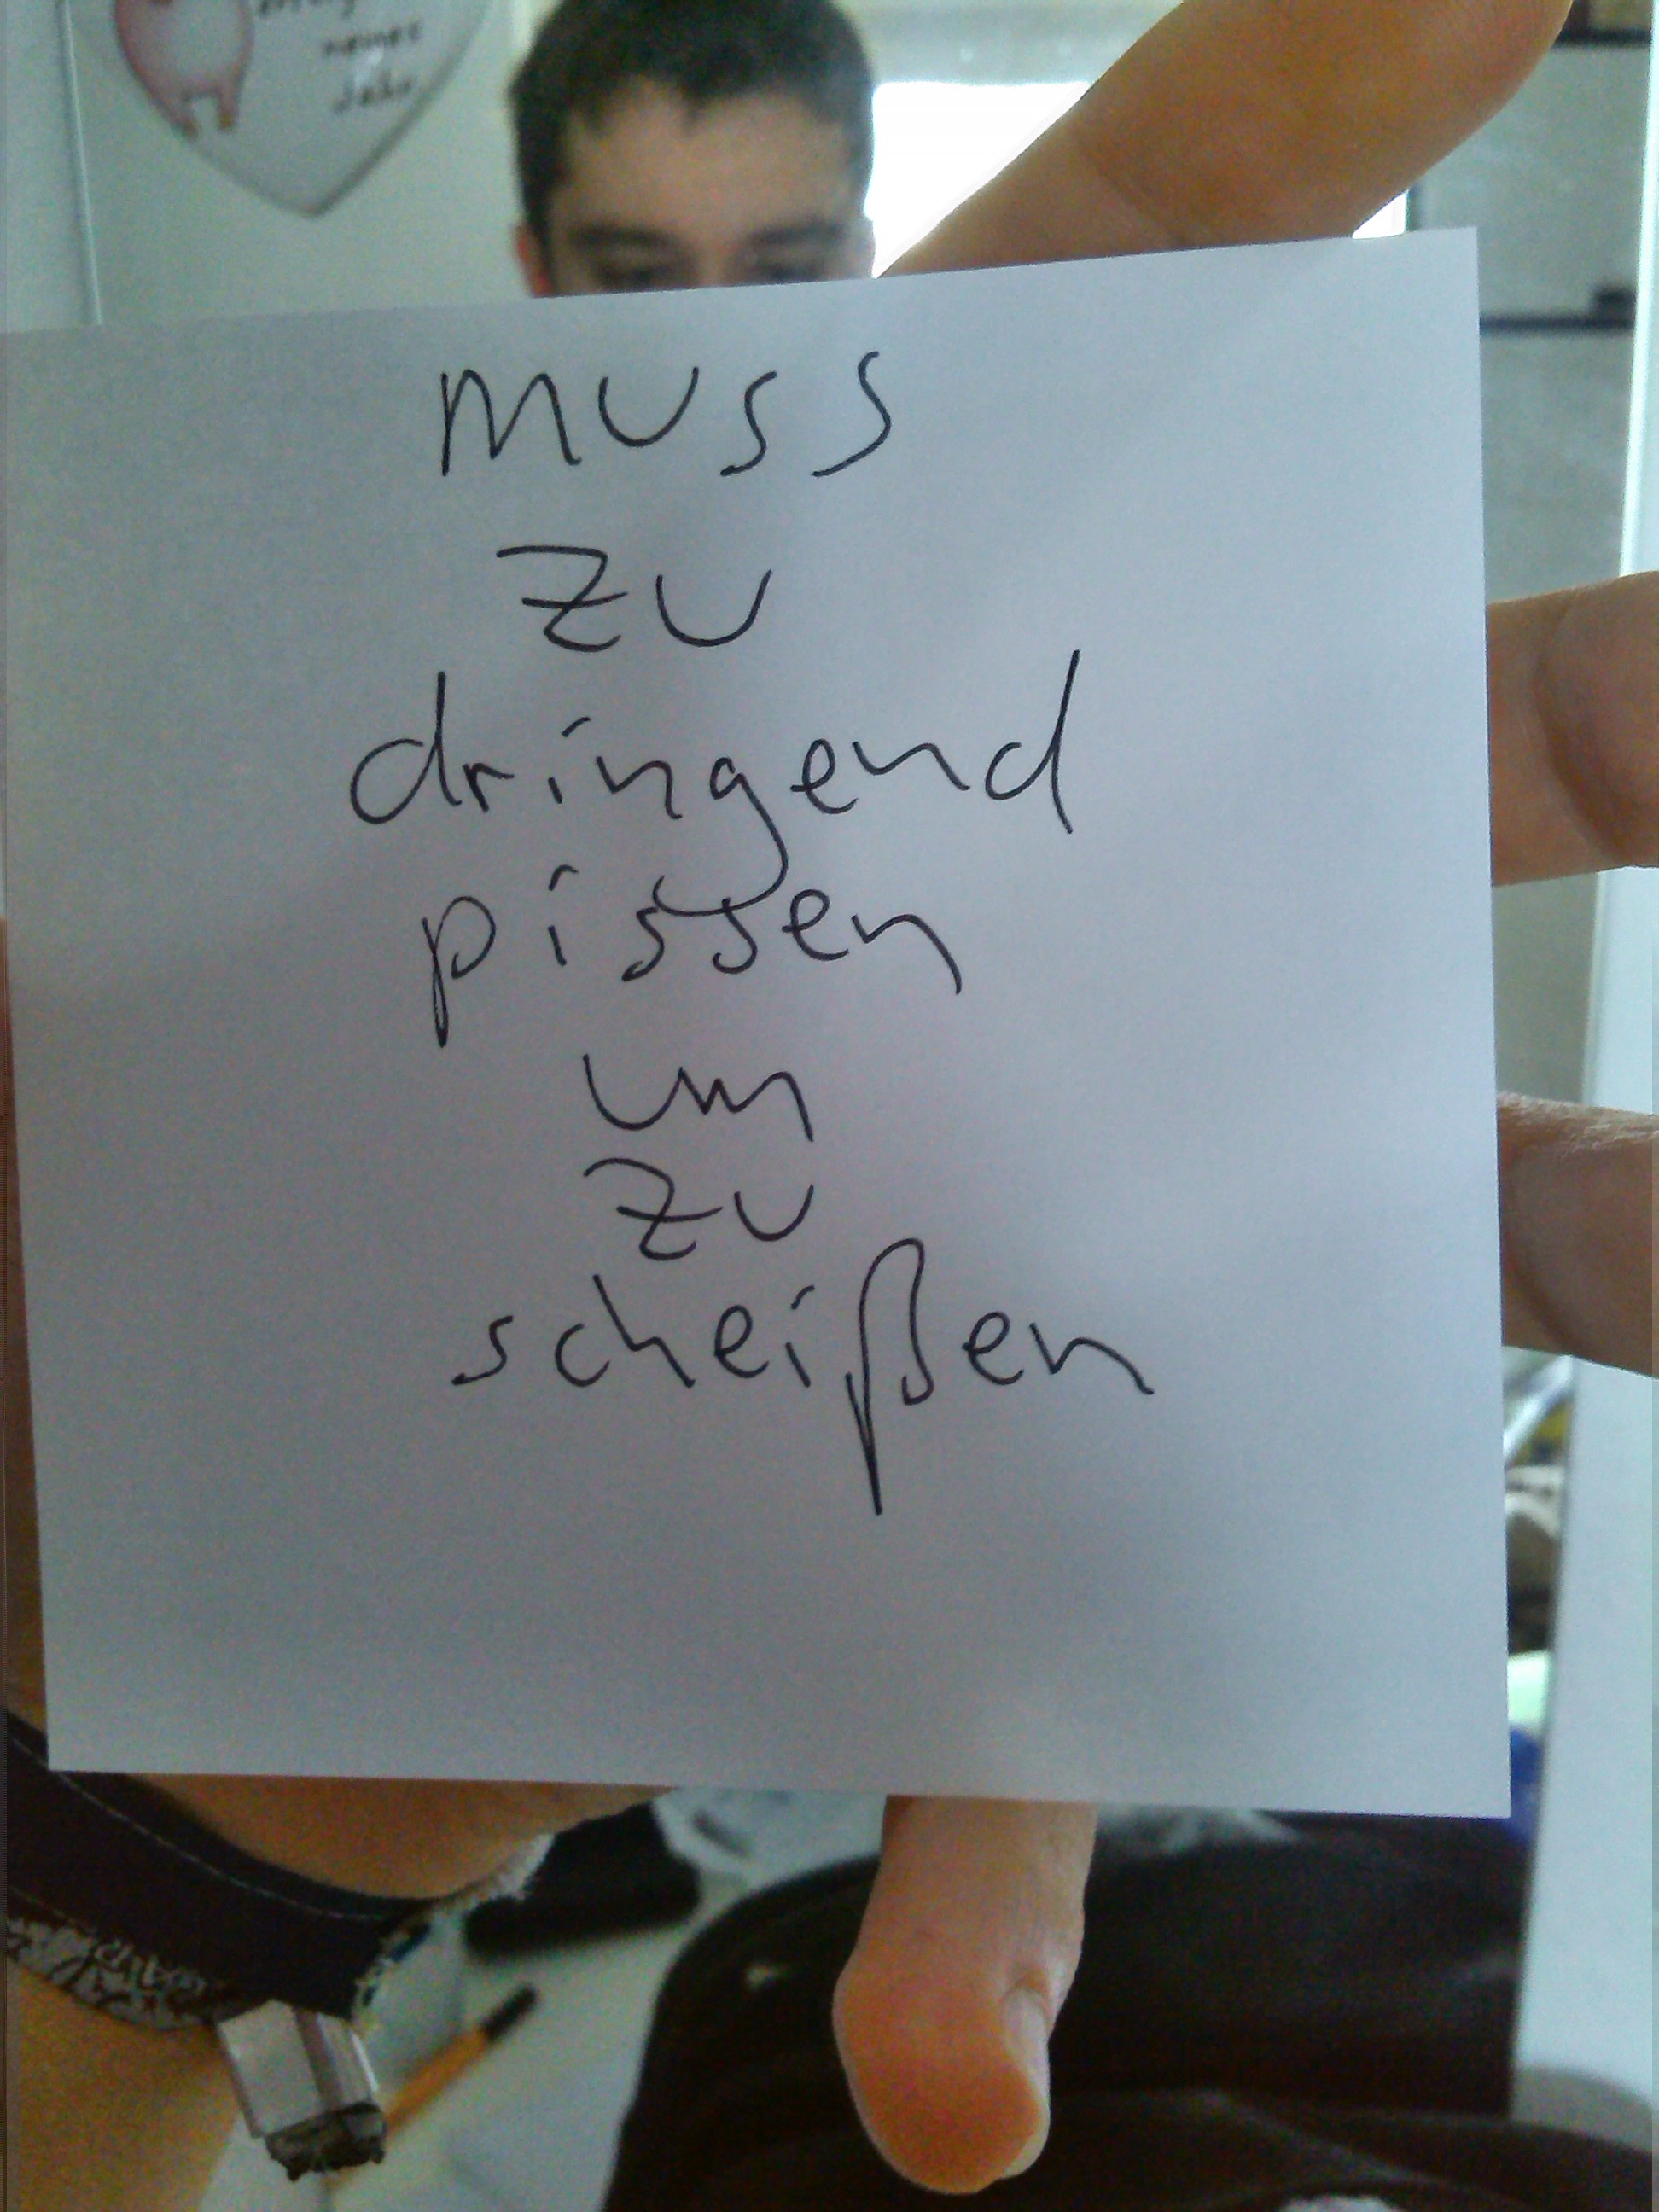 meines
Jahr
muss
zu
dringend
pissen
um
zu
scheißen